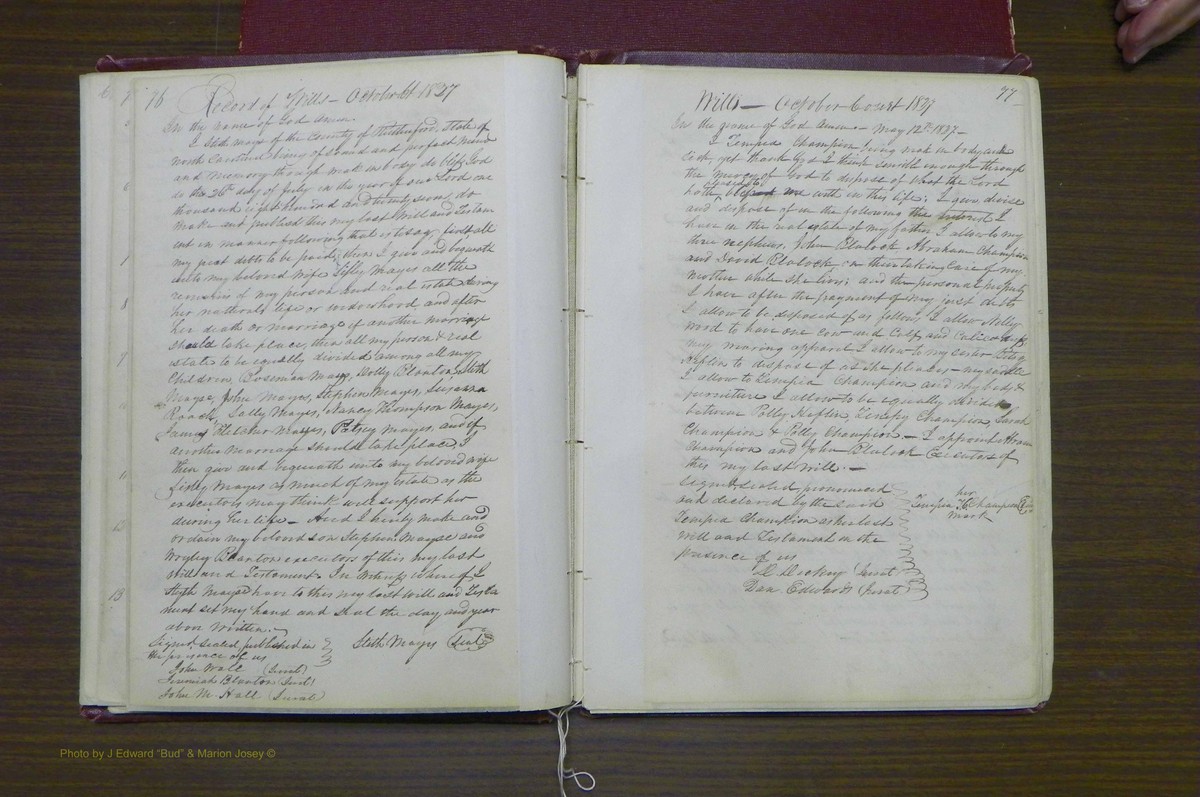 76 Record of Wills - October Ct 1827
In the name of God Amen.
I Sleth Mayes of the County of Rutherford, State of
North Carolina being of sound and perfect mind
and memory though weak in body do this
the 26th day of July in the year of our Lord one
thousand eight hundred and twenty seven do
make and publish this my last Will and Testam
ent in manner following that is to say, first all
my just debts to be paid, then I give and bequeath
unto my beloved wife Sifley Mayes all the
remains of my person and real estate during
her natural life or widowhood, and after
her death or marriage if another marriage
should take place, then all my person & real
estate to be equally divided among all my
Children, Boseman Mayes, Dolly Blanton, Sleth
Mayse, John Mayes, Stephen Mayes, Susanna
Roach, Sally Mayes, Nancy Thompson Mayes,
James Fletcher Mayes, Patsey Mayes, and if
another marriage should take place I
then give and bequeath unto my beloved wife
Sifley Mayes as much of my estate as the
executors may think will support her
during her life - And I hereby make and
ordain my beloved son Stephen Mayse and
Wryley Blanton executors of this my last
Will and Testament. In Witness whereof I
Sleth Mayes have to this my last Will and Testa
ment set my hand and seal the day and year
above written.-
Signed, sealed published in
the presence of us
Sleth Mayes (Seal)
John Wall (Jurat)
Jeremiah Blanton (Jurat)
John M. Hall (Jurat)
Wills - October Court 1827 77
In the name of God Amen - May 12th 1827 -
I Tempia Champion being weak in body and
sick, yet thank God I think senses enough through
the mercy of God to dispose of what the Lord
hath me with in this life; I give devise
and dispose of in the following the interest I
have in the real estate of my father I allow to my
three nephews, John Blalock Abraham Champion
and David Blalock on their taking care of my
mother while she lives; and the personal property
I have after the payment of my just debts
I allow to be disposed of as follows, I allow Nelly
word to have one Cow and Calf, and Calico
my wearing apparel I allow to my sister Betsy
Heflin to dispose of as she pleases - my saddle
I allow to Tempia Champion and my beds &
furniture I allow to be equally divided
between Polly Heflin, Tempy Champion, Sarah
Champion & Polly Champion. - I appoint Abram
Champion and John Blalock Executors of
this my last Will. -
Signed, sealed pronounced
and declared by the said
Tempia Champion as her last
Will and Testament in the
presence of us
her
Tempia X Champion (Seal)
mark
D Dickey Jurat
Dan Edwards Jurat
Photo by J Edward "Bud" & Marion Josey ©